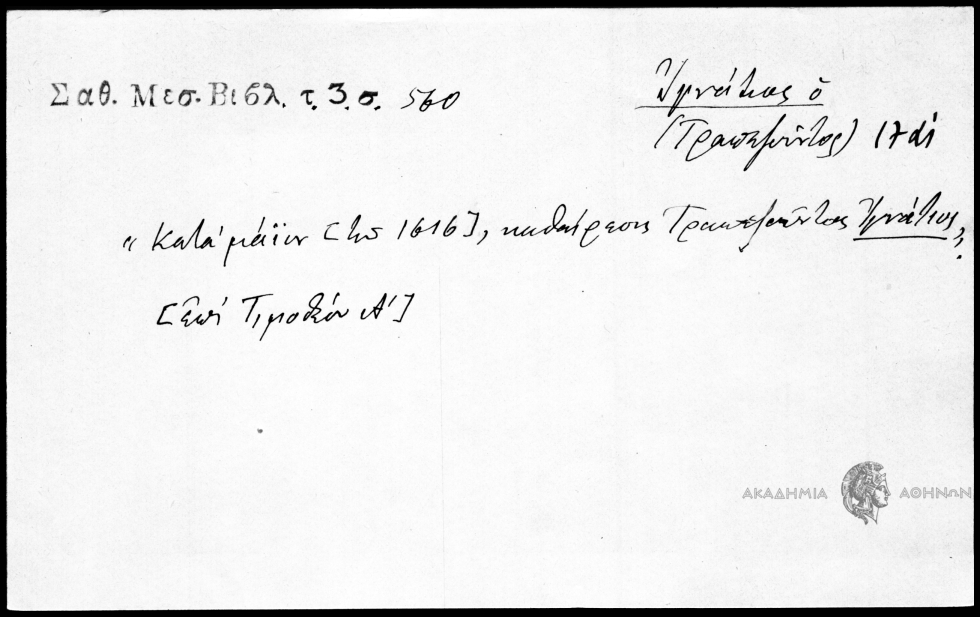 Σαθ. Μεσ. Βιβλ. τ. 3. σ. 560
Ἰγνάτιος ὁ
(Τραπεζοῦντος) 17 αἰ
"Κατά μάϊον [τοῦ 1616], καθαίρεσις Τραπεζοῦντος Ἰγνάτιος"
[ἐπί Τιμοθέου Α']
ΑΚΑΔΗΜΙΑ ΑΘΗΝΩΝ